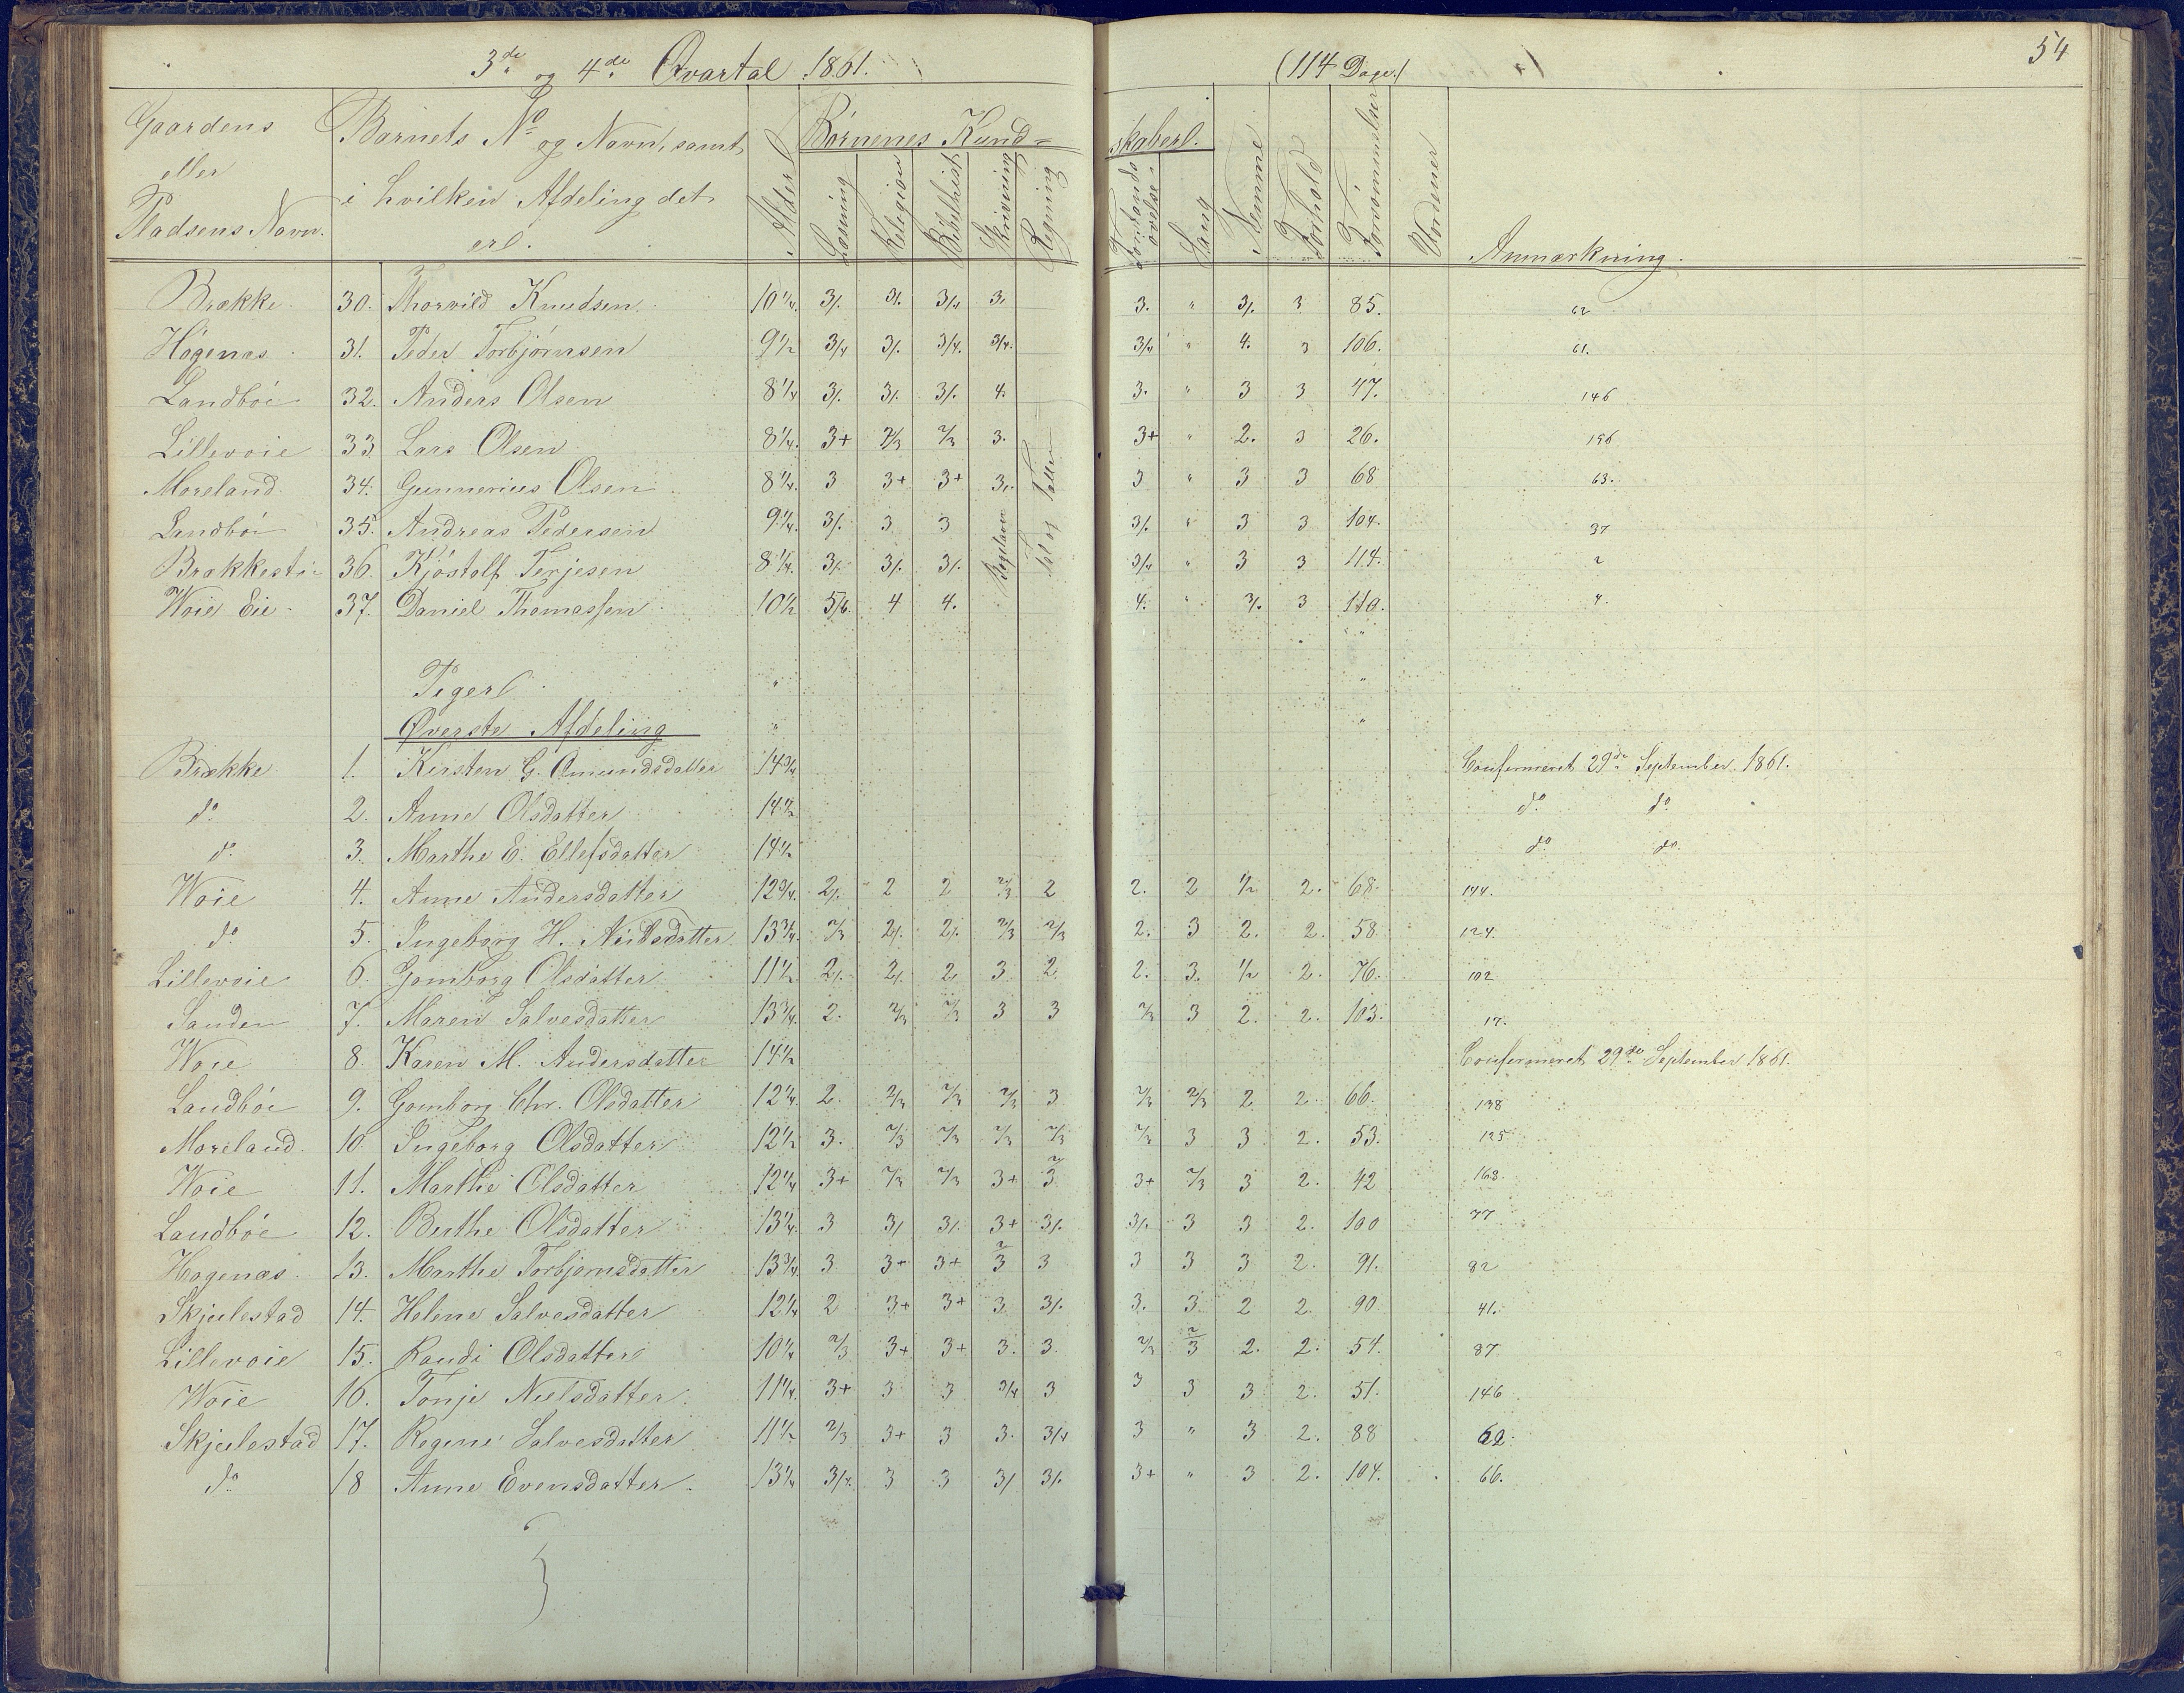 3de og 4de Qvartal 1861. (114 Dage.) 54
Gaardens eller Pladsens Navn. Barnets No og Navn, samt i hvilken Afdeling det er. Alder Børnenes Kundskaber. Læsning Religion Bibelhist. Skrivning Regning Forstands øvelse Sang Nemme Forhold Forsømmelser Vurdener Anmærkning.
Brække 30. Thorvild Knudsen 10 1/4. 3/. 3/. 3/4 3. 3. " 3/. 3 85. 62
Högenæs 31. Peder Torbjörnsen 9 1/2 3/4 3/. 3/4. 3/4. 3/4 " 4. 3 106. 61.
Landböe 32. Anders Olsen 8 1/4 3/. 3/. 3/. 4. 3. " 3 3 47. 146
Lillevoie 33 Lars Olsen 8 1/4. 3+ 2/3 2/3 3. 3+ " 2. 3 26. 156
Moreland 34. Gunnerius Olsen 8 1/4. 3 3+ 3+ 3. 3 " 3 3 68 63.
Landböe 35. Andreas Pedersen 9 1/4. 3/. 3 3 3/. " 3 3 104. 37
Brækkestø 36. Kjöstolf Terjesen 8 1/4. 3/. 3/. 3/. 3/4 " 3 3 114. 2
Woie Eie 37. Daniel Thomassen 10 1/2 5/6. 4 4. 4. " 3/. 3 110. 4.
Piger
Øverste Afdeling
Brække 1. Kirsten G. Omundsdatter 14 3/4 Confermeret 29de September 1861.
do 2. Anne Olsdatter 14 1/2 do do
do 3. Marthe E. Ellefsdatter 14 1/2 do do.
Woie 4. Anne Andersdatter 12 3/4. 2/. 2 2 2/3 2 2. 2 1/2 2. 68. 144.
do 5. Ingeborg H. Nielsdatter 13 3/4. 2/3 2/. 2/. 2/3 2/3 2. 3 2. 2. 58 124.
Lillevoie 6. Gomborg Olsdatter 11 1/2 2/. 2/. 2/. 3 2 2. 3. 1/2 2. 76. 102
Sanden 7. Maren Salvesdatter 13 3/4. 2. 2/3 2/3 3 3 2/3 3 2. 2. 103. 17.
Woie 8 Karen M. Andersdatter 14 1/2 Confermeret 29de September 1861.
Landböe 9. Gomborg Chr. Olsdatter 12 1/4. 2. 2/3 2/3 2/3 3 2/3 2/3 2 2. 66. 138
Moreland 10 Ingeborg Olsdatter 12 1/2 3. 2/3 2/3 2/3 2/3 2/3 3 3 2. 53. 125
Woie 11. Marthe Olsdatter 12 1/4 3+ 2/3 2/3 3+ 2/3 3+ 2/3 3 2. 42 168.
Landböe 12. Berthe Olsdatter 13 1/4. 3 3/ 3/. 3+ 3/. 3/. 3 3 2. 100 77
Hogenæs 13. Marthe Torbjørnsdatter 13 3/4. 3 3+ 3+ 2/3 3 3 3 3 2. 91. 82
Skjulestad 14. Helene Salvesdatter 12 1/4 2 3+ 3+ 3. 3/. 3. 3 2 2. 90 41.
Lillevoie 15. Randi Olsdatter 10 1/4 2/3 3+ 3+ 3. 3. 2/3 2/3 2. 2. 54. 87
Woie 16. Tonje Nielsdatter 11 1/4. 3+ 3 3 3/4 3 3 3 3 2. 51. 146
Skjulestad 17. Regine Salvesdatter 11 1/2 2/3 3+ 3 3. 3/4 3 " 3 2. 88 62.
do 18 Anne Evensdatter 13 1/4 3/4. 3 3 3/ 3/. 3+ " 3 2. 104. 66.